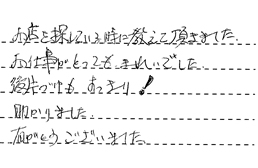 お店を探している時に教えて頂きました。
お仕事がとってもきれいでした。
後片づけも あっさり!
助かりました。
有がとうございました。